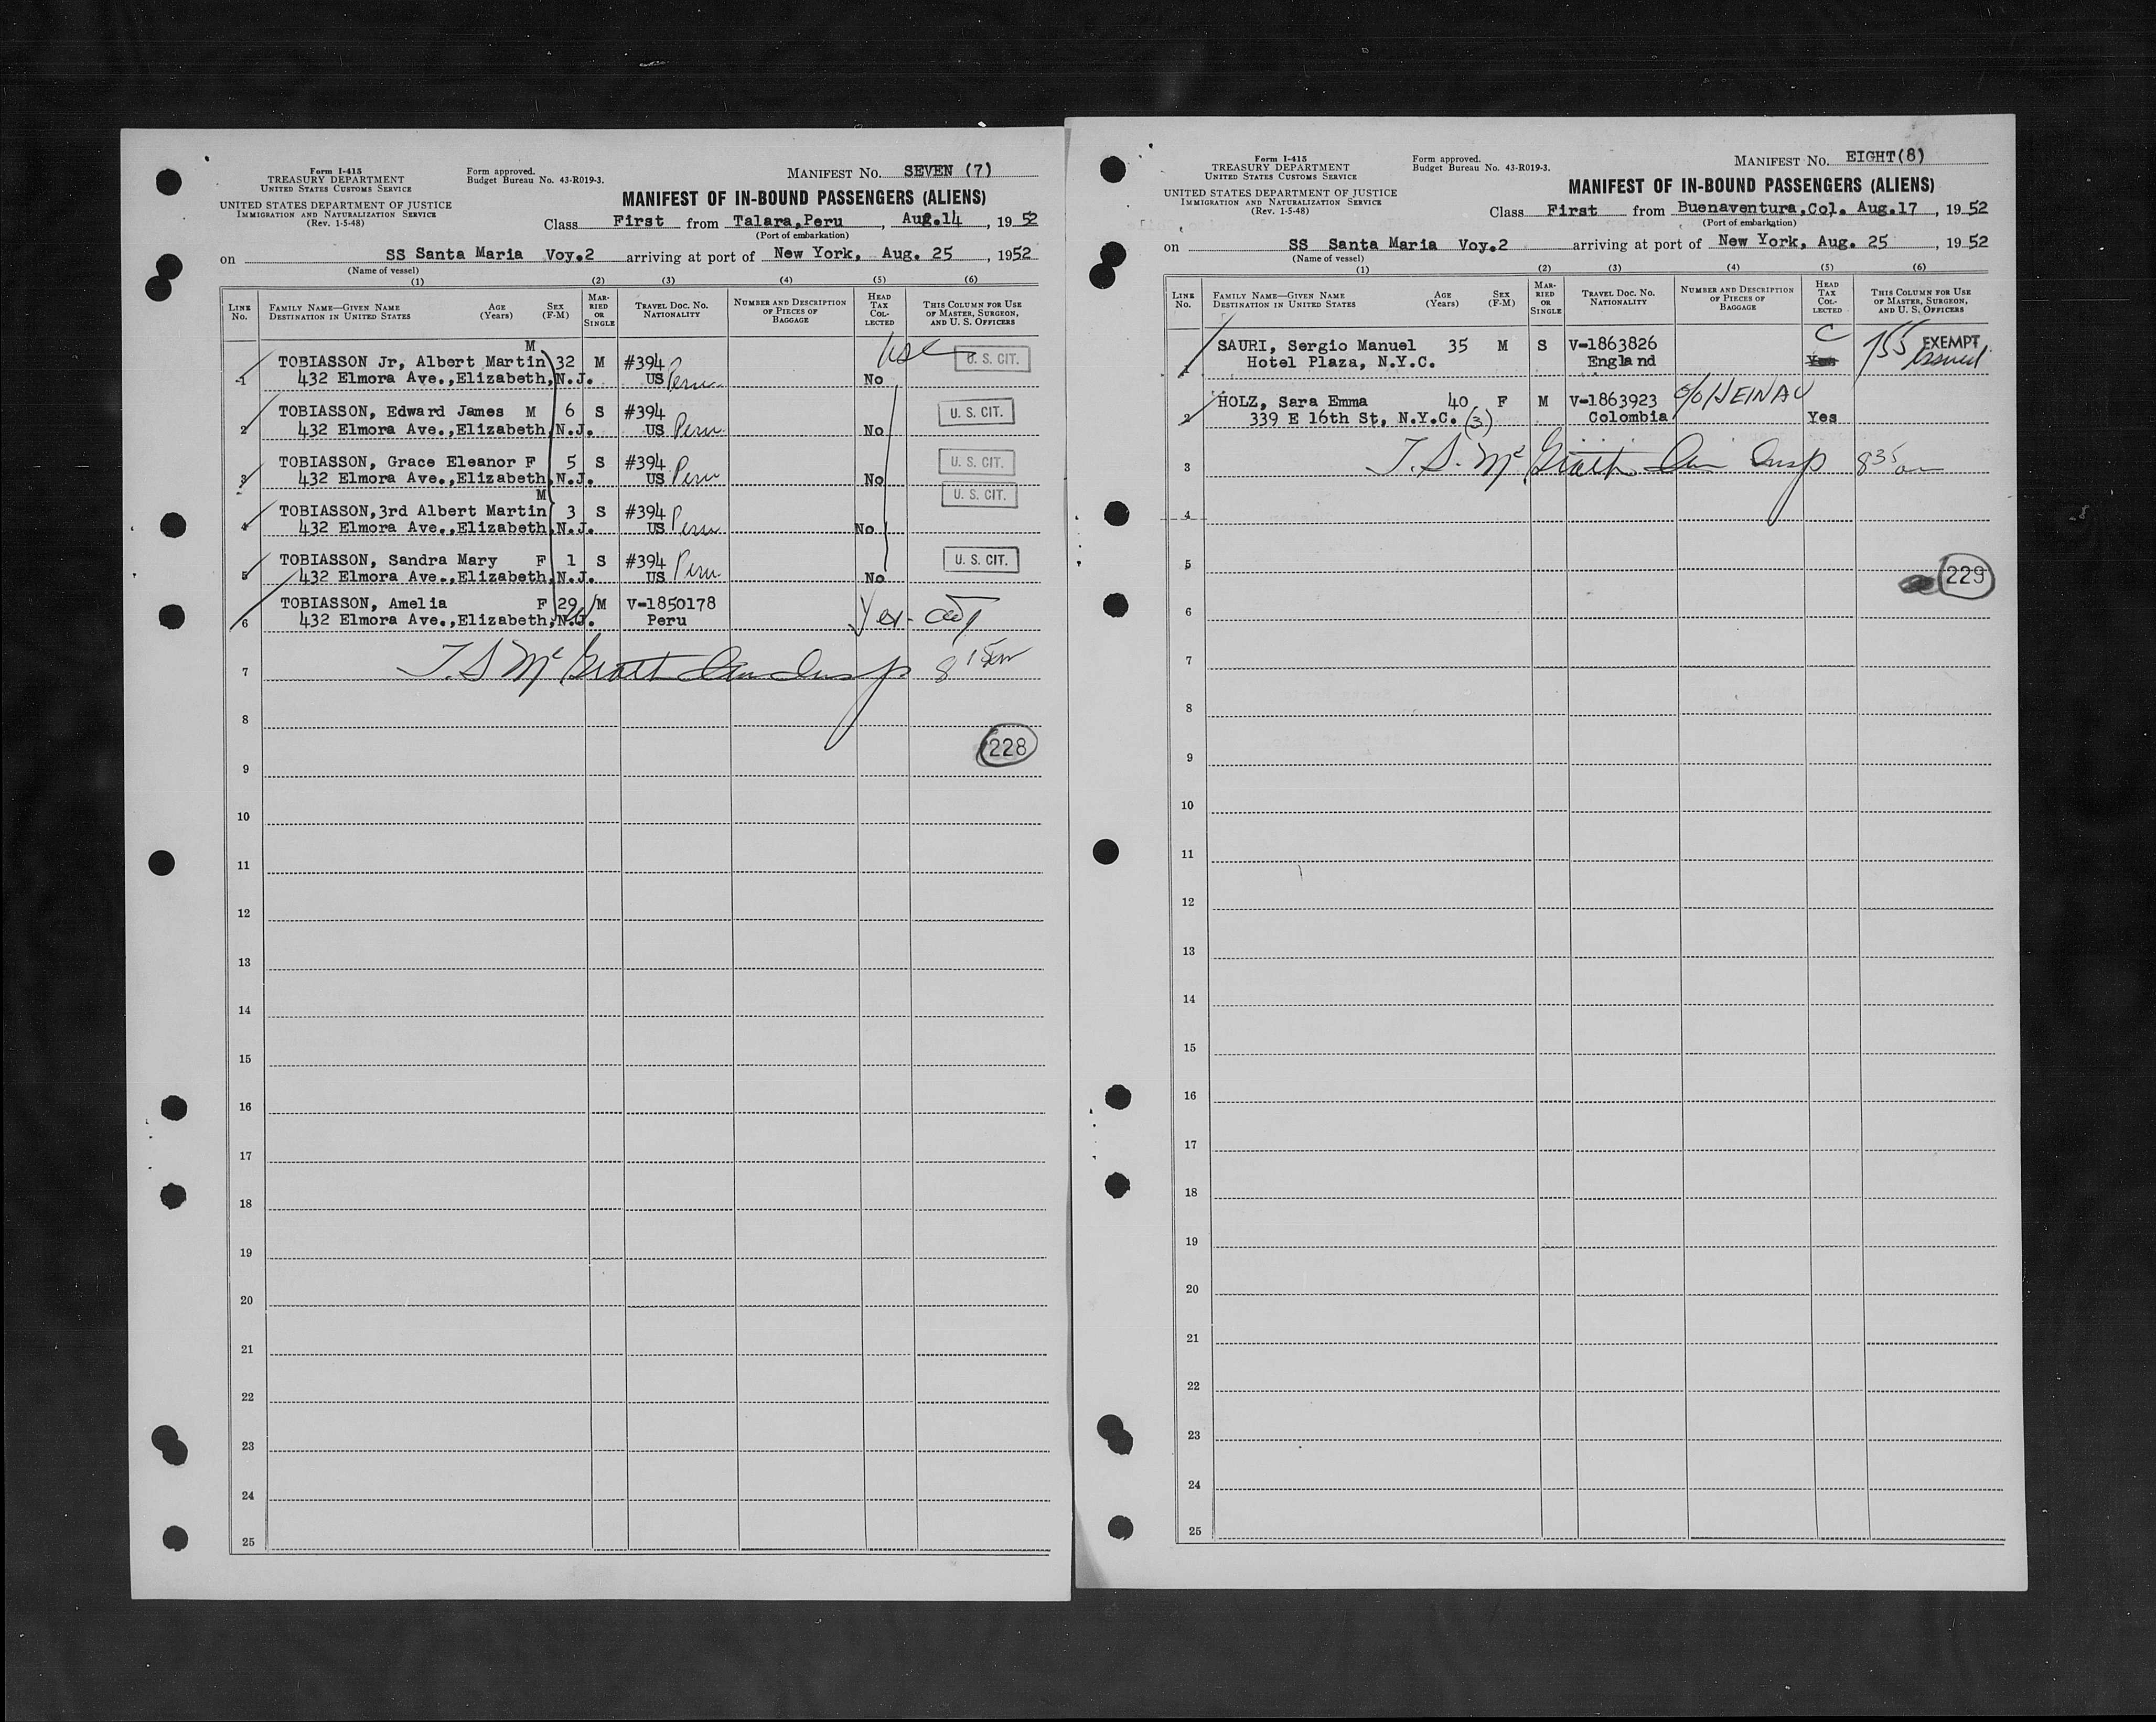 Form I-415
TREASURY DEPARTMENT
UNITED STATES CUSTOMS SERVICE
UNITED STATES DEPARTMENT OF JUSTICE
IMMIGRATION AND NATURALIZATION SERVICE
(Rev. 1-5-48)
Form approved.
Budget Bureau No. 43-R019-3.
MANIFEST NO. SEVEN (7)
MANIFEST OF IN-BOUND PASSENGERS (ALIENS)
Class First from Talara,Peru , Aug.14 , 19 52
(Port of embarkation)
on SS Santa Maria Voy.2 arriving at port of New York, Aug. 25 , 1952
(Name of vessel)
(1) (2) (3) (4) (5) (6)
LINE No. FAMILY NAME—GIVEN NAME DESTINATION IN UNITED STATES AGE (Years) SEX (F-M) MARRIED OR SINGLE TRAVEL DOC. NO. NATIONALITY NUMBER AND DESCRIPTION OF PIECES OF BAGGAGE HEAD TAX COLLECTED THIS COLUMN FOR USE OF MASTER, SURGEON, AND U. S. OFFICERS
1 TOBIASSON Jr, Albert Martin M 32 M #394 USC U. S. CIT.
432 Elmora Ave.,Elizabeth,N.J. US Peru No
2 TOBIASSON, Edward James M 6 S #394 U. S. CIT.
432 Elmora Ave.,Elizabeth,N.J. US Peru No
3 TOBIASSON, Grace Eleanor F 5 S #394 U. S. CIT.
432 Elmora Ave.,Elizabeth,N.J. US Peru No
4 TOBIASSON,3rd Albert Martin M 3 S #394 U. S. CIT.
432 Elmora Ave.,Elizabeth,N.J. US Peru No
5 TOBIASSON, Sandra Mary F 1 S #394 U. S. CIT.
432 Elmora Ave.,Elizabeth,N.J. US Peru No
6 TOBIASSON, Amelia F 29 M V-1850178 Yes
432 Elmora Ave.,Elizabeth,N.J. Peru
7 T. S. McGrath Insp 8
8
228
9
10
11
12
13
14
15
16
17
18
19
20
21
22
23
24
25
Form I-415
TREASURY DEPARTMENT
UNITED STATES CUSTOMS SERVICE
UNITED STATES DEPARTMENT OF JUSTICE
IMMIGRATION AND NATURALIZATION SERVICE
(Rev. 1-5-48)
Form approved.
Budget Bureau No. 43-R019-3.
MANIFEST NO. EIGHT(8)
MANIFEST OF IN-BOUND PASSENGERS (ALIENS)
Class First from Buenaventura,Col. Aug.17 , 19 52
(Port of embarkation)
on SS Santa Maria Voy.2 arriving at port of New York, Aug. 25 , 19 52
(Name of vessel)
(1) (2) (3) (4) (5) (6)
LINE No. FAMILY NAME—GIVEN NAME DESTINATION IN UNITED STATES AGE (Years) SEX (F-M) MARRIED OR SINGLE TRAVEL DOC. NO. NATIONALITY NUMBER AND DESCRIPTION OF PIECES OF BAGGAGE HEAD TAX COLLECTED THIS COLUMN FOR USE OF MASTER, SURGEON, AND U. S. OFFICERS
1 SAURI, Sergio Manuel 35 M S V-1863826 C 755 EXEMPT
Hotel Plaza, N.Y.C. England Yes Issued
2 HOLZ, Sara Emma 40 F M V-1863923 c/o HEINAU
339 E 16th St, N.Y.C. (3) Colombia Yes
3 T. S. McGrath Insp 8 35 am
4
5
229
6
7
8
9
10
11
12
13
14
15
16
17
18
19
20
21
22
23
24
25